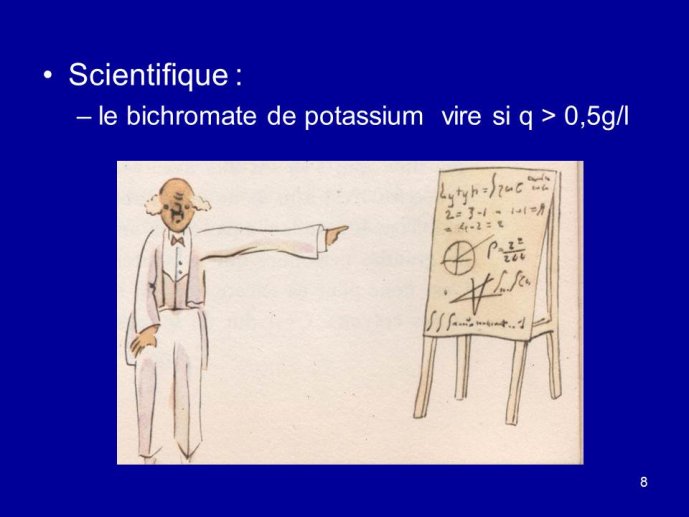 • Scientifique :
– le bichromate de potassium vire si q > 0,5g/l
2 = 3-1
= 4-2 = 2
8